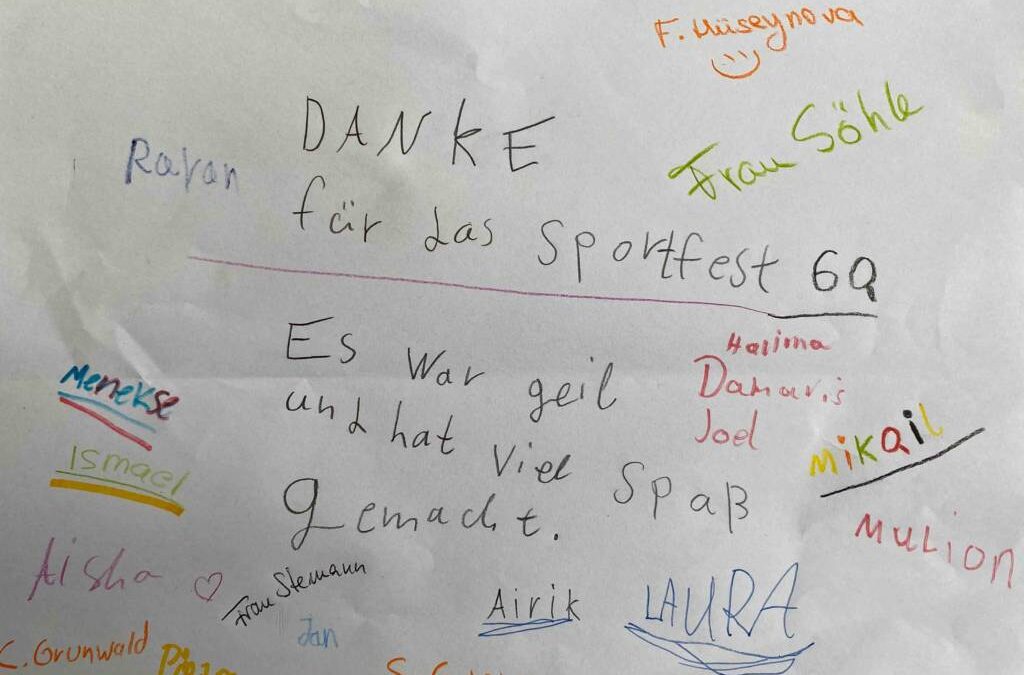 F. Müseynova
DANKE
Frau Söhle
Ravan
für das Sportfest 6a
Es war geil
Halima
Damaris
Joel
und hat viel Spaß
gemacht.
Menekse
Ismael
Mikail
Mulion
Aisha
Frau Stemann
Jan
Airik
LAURA
C. Grunwald